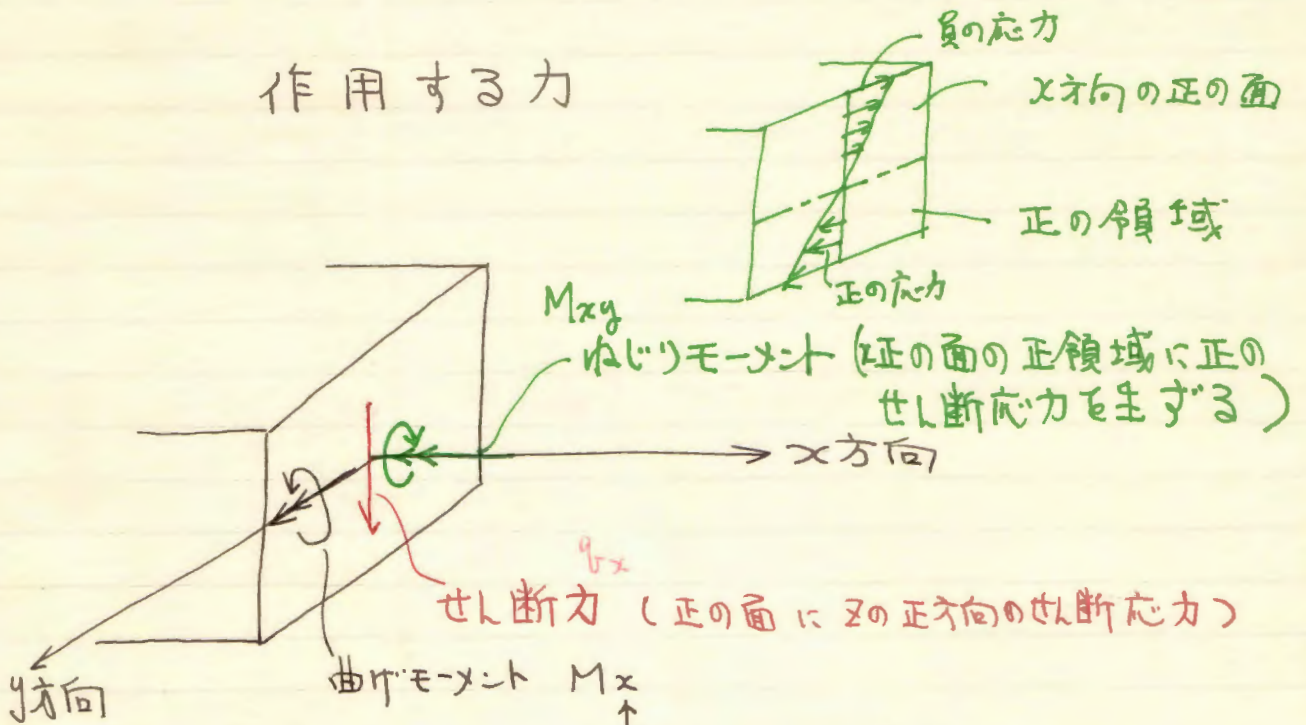 作用する力
負の応力
x方向の正の面
正の領域
正の応力
Mxy
ねじりモーメント (x正の面の正領域に正の
せん断応力を生ずる)
x方向
qx
せん断力 (正の面にzの正方向のせん断応力)
y方向
曲げモーメント Mx
↑